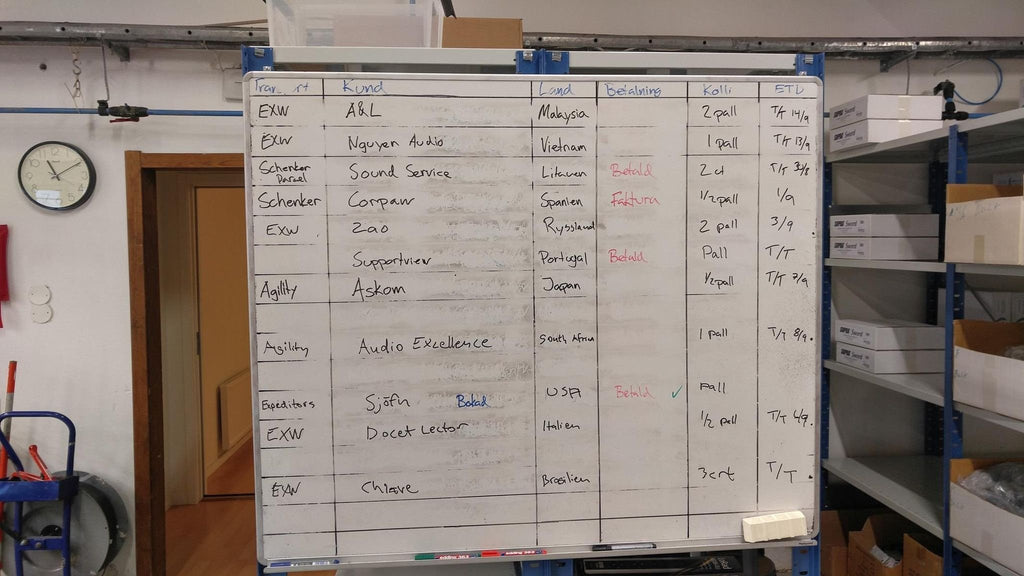 Kund Land Betalning Kolli
EXW A&L Malaysia 2 pall T/T 14/9
EXW Nguyen Audio Vietnam 1 pall T/T 13/9
Schenker Parcel Sound Service Litauen Betald 2 ct T/T
Schenker Spanien Faktura 1/2 pall 1/9
EXW Zao Ryssland 2 pall 3/9
Supportview Portugal Betald Pall T/T
Agility Askom Japan 1/2 pall T/T 7/9
Agility Audio Excellence South Africa 1 pall T/T 8/9
Expeditors Sjöfn Bokad USA Betald ✓ Pall
EXW Docet Lector Italien 1/2 pall T/T 4/9
EXW Chiave Brasilien 3 crt T/T